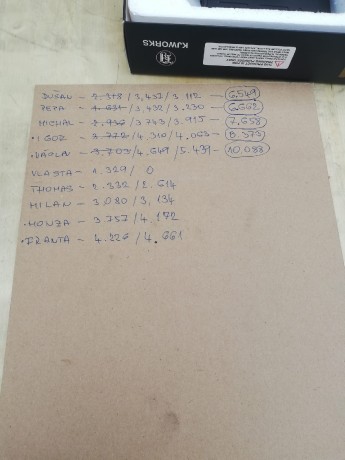 KJWORKS
DUŠAN - 2.318 / 3,437 / 3.112 - 6.549
PEPA - 1.631 / 3,432 / 3.230 - 6.662
MICHAL - 2.736 / 3.743 / 3.915 - 7.658
• IGOR - 3.772 / 4,310 / 4.063 - 8.373
• VÁCLAV - 3.703 / 4.649 / 5.439 - 10.088
VLASTA - 1.329 / 0
THOMAS - 2.332 / 2.614
MILAN - 3.080 / 3,134
• HONZA - 3.757 / 4.172
• FRANTA - 4.226 / 4.661